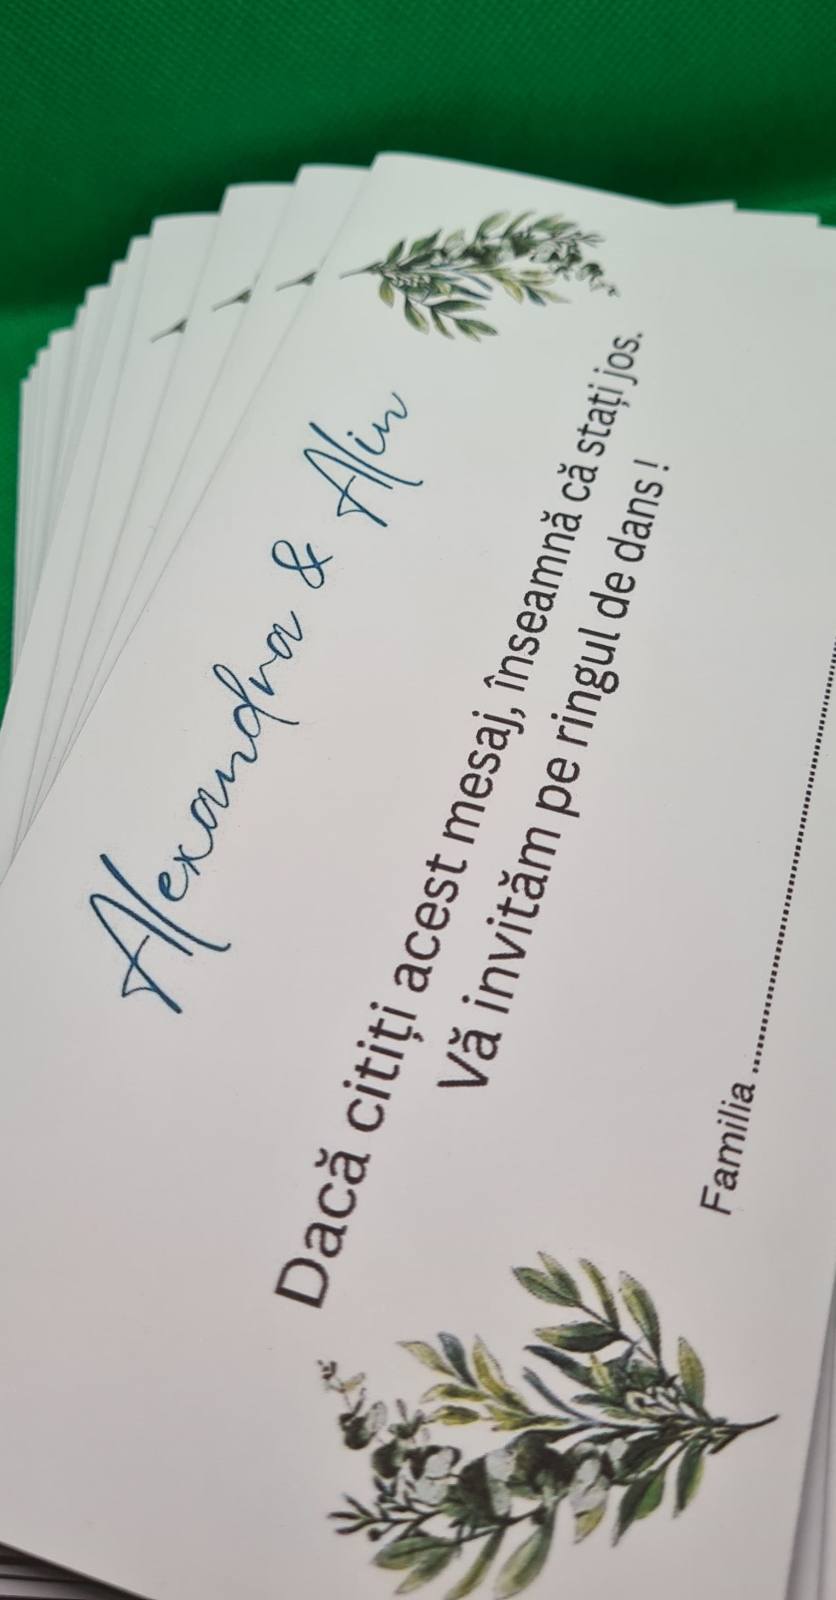 Alexandra & Alin
Dacă citiți acest mesaj, înseamnă că stați jos.
Vă invităm pe ringul de dans !
Familia ................................................